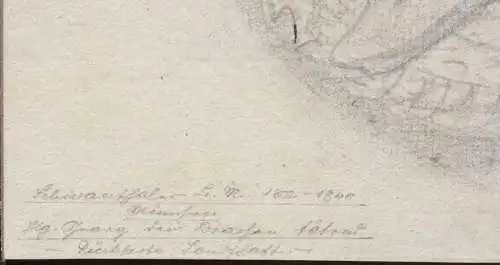 Schwanthaler L. M. 182 - 1848
München
Hlg. Georg den Drachen tötend
- Rückseite Landschaft -